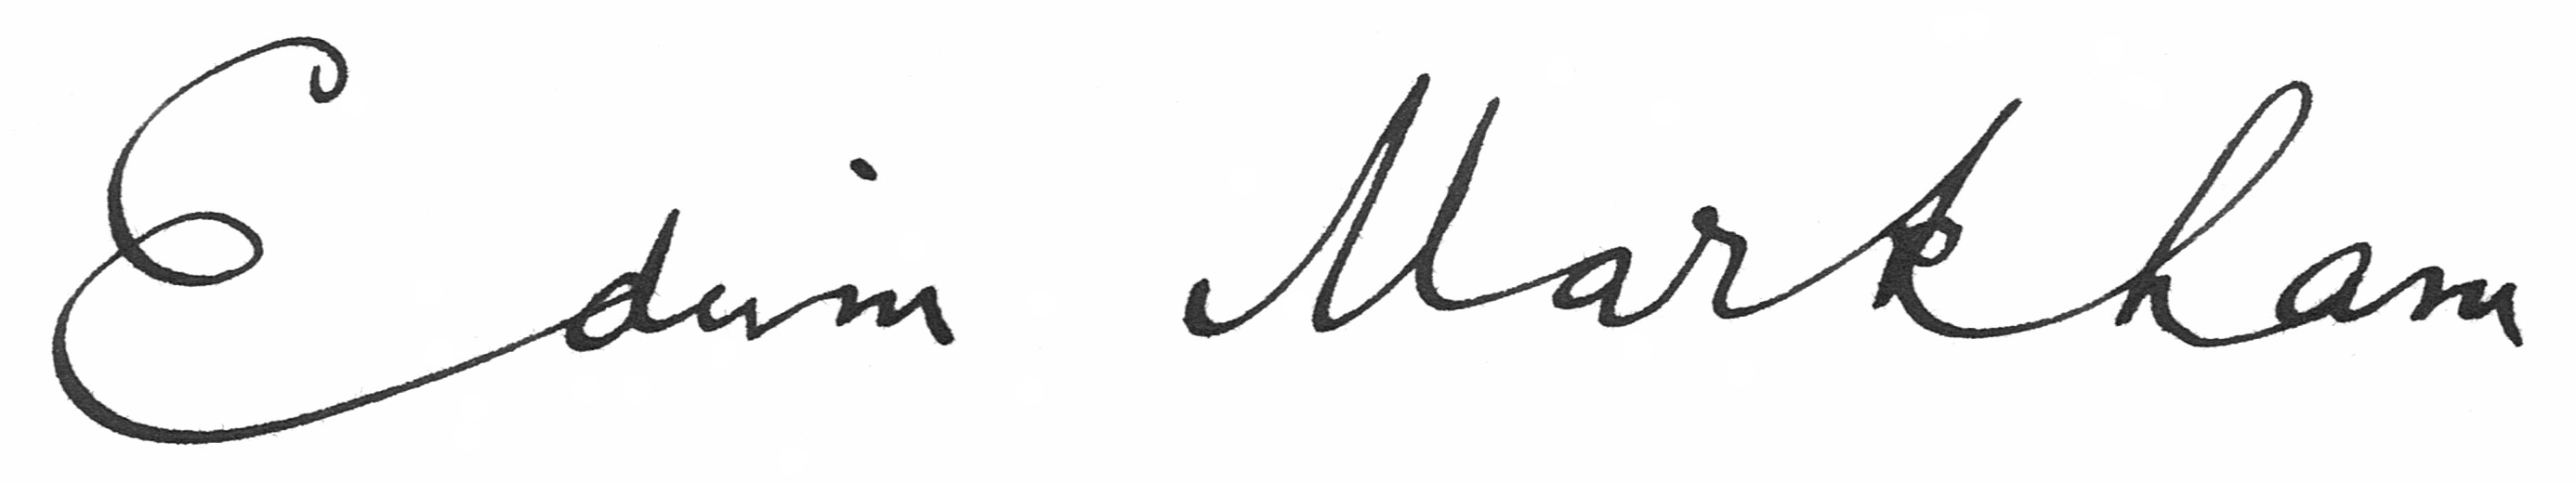 Edwin Markham